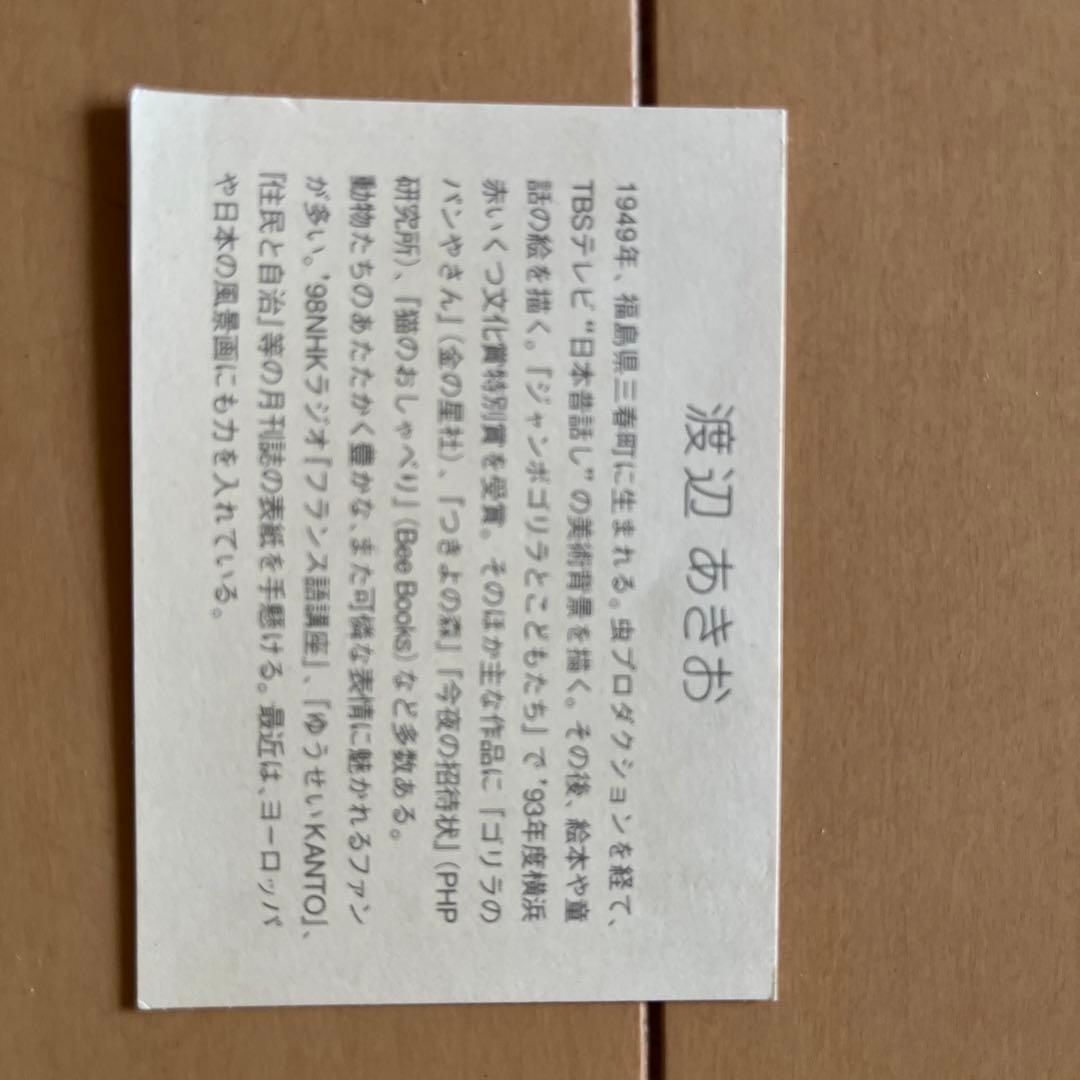 渡辺 あきお
1949年、福島県三春町に生まれる。虫プロダクションを経て、
TBSテレビ“日本昔話し”の美術背景を描く。その後、絵本や童
話の絵を描く。「ジャンボゴリラとこどもたち」で’93年度横浜
赤いくつ文化賞特別賞を受賞。そのほか主な作品に「ゴリラの
パンやさん」(金の星社)、「つきよの森」「今夜の招待状」(PHP
研究所)、「猫のおしゃべり」(Bee Books)など多数ある。
動物たちのあたたかく豊かな、また可憐な表情に魅かれるファン
が多い。’98NHKラジオ「フランス語講座」、「ゆうせいKANTO」、
「住民と自治」等の月刊誌の表紙を手懸ける。最近は、ヨーロッパ
や日本の風景画にも力を入れている。